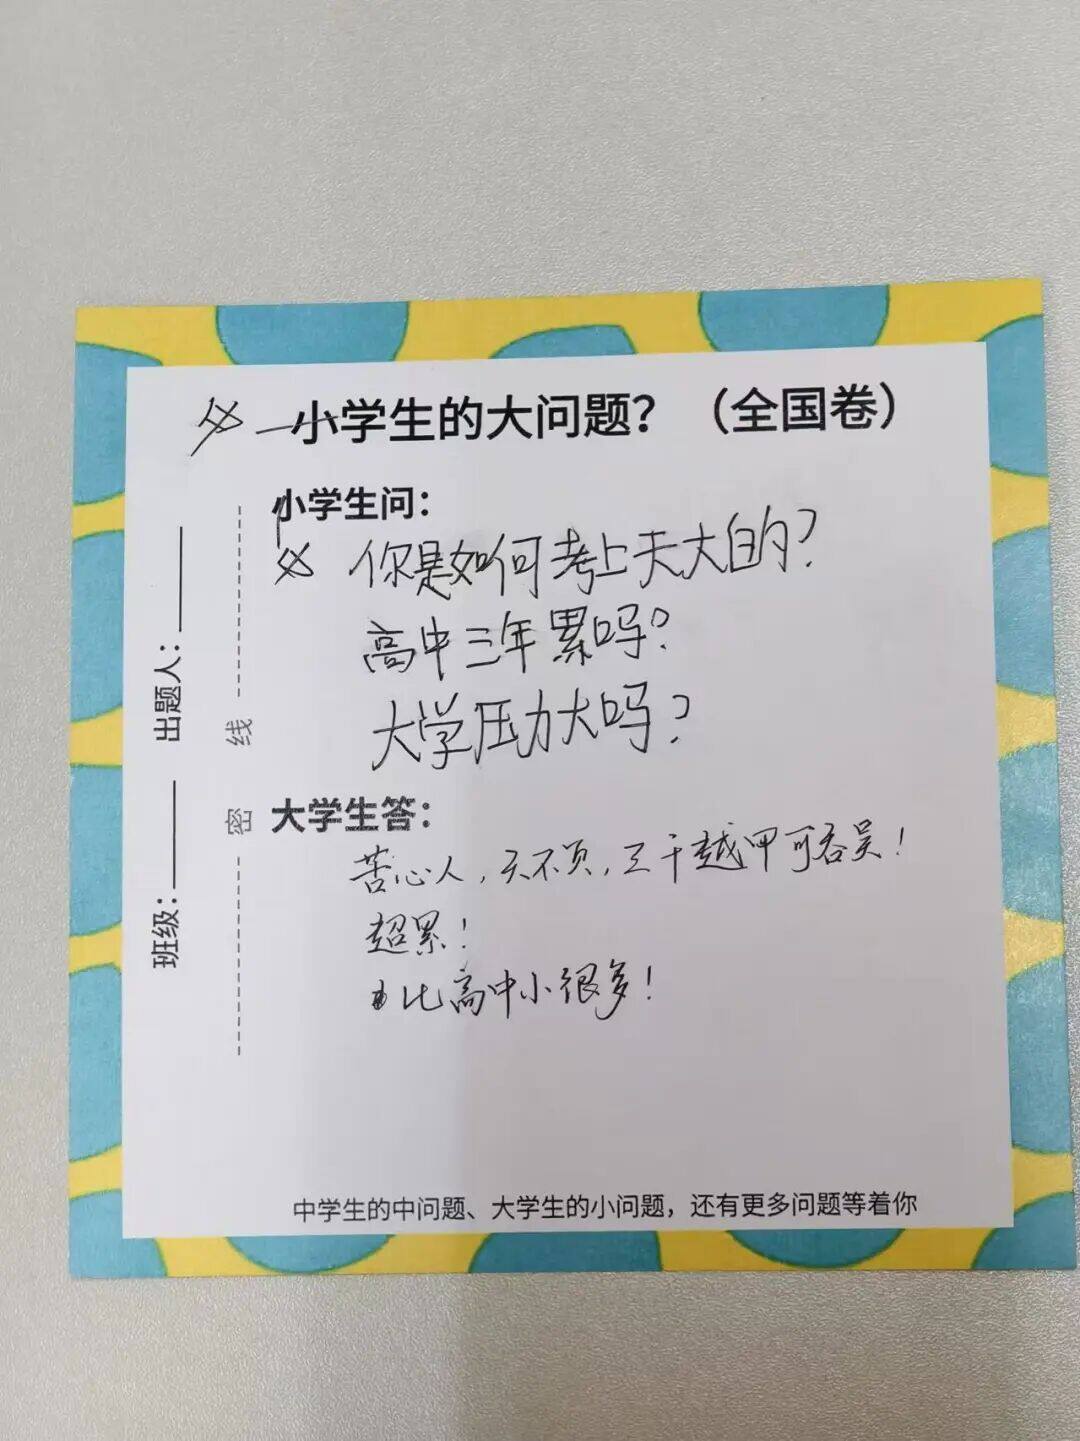 小学生的大问题？（全国卷）
小学生问：
你是如何考上天大的？
高中三年累吗？
大学压力大吗？
大学生答：
苦心人，天不负，三千越甲可吞吴！
超累！
比高中小很多！
中学生的中问题、大学生的小问题，还有更多问题等着你
班级：
出题人：
密 线